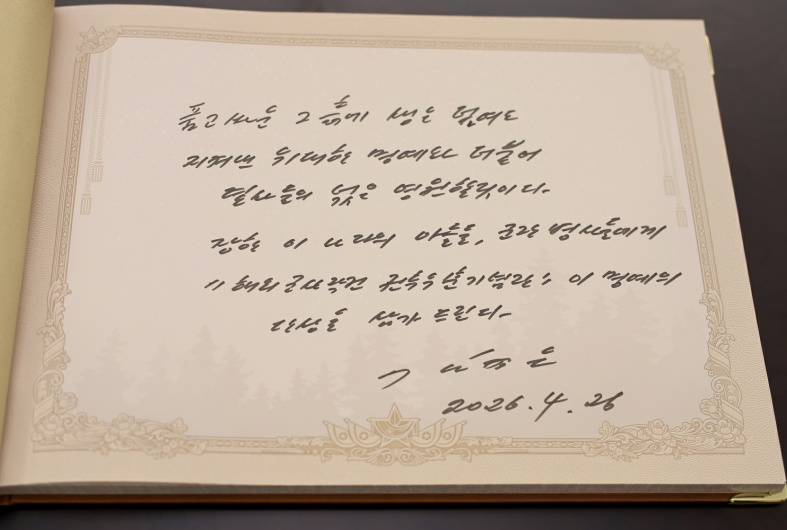 품고 싸운 그 흙에 생은 졌어도
지켜낸 위대한 명예와 더불어
렬사들의 넋은 영원할것이다.
장한 이 나라의 아들들, 군관 병사들에게
《해외군사작전 전투위훈기념관》 이 명예의
단상을 삼가 드린다.
김정은
2026.4.26